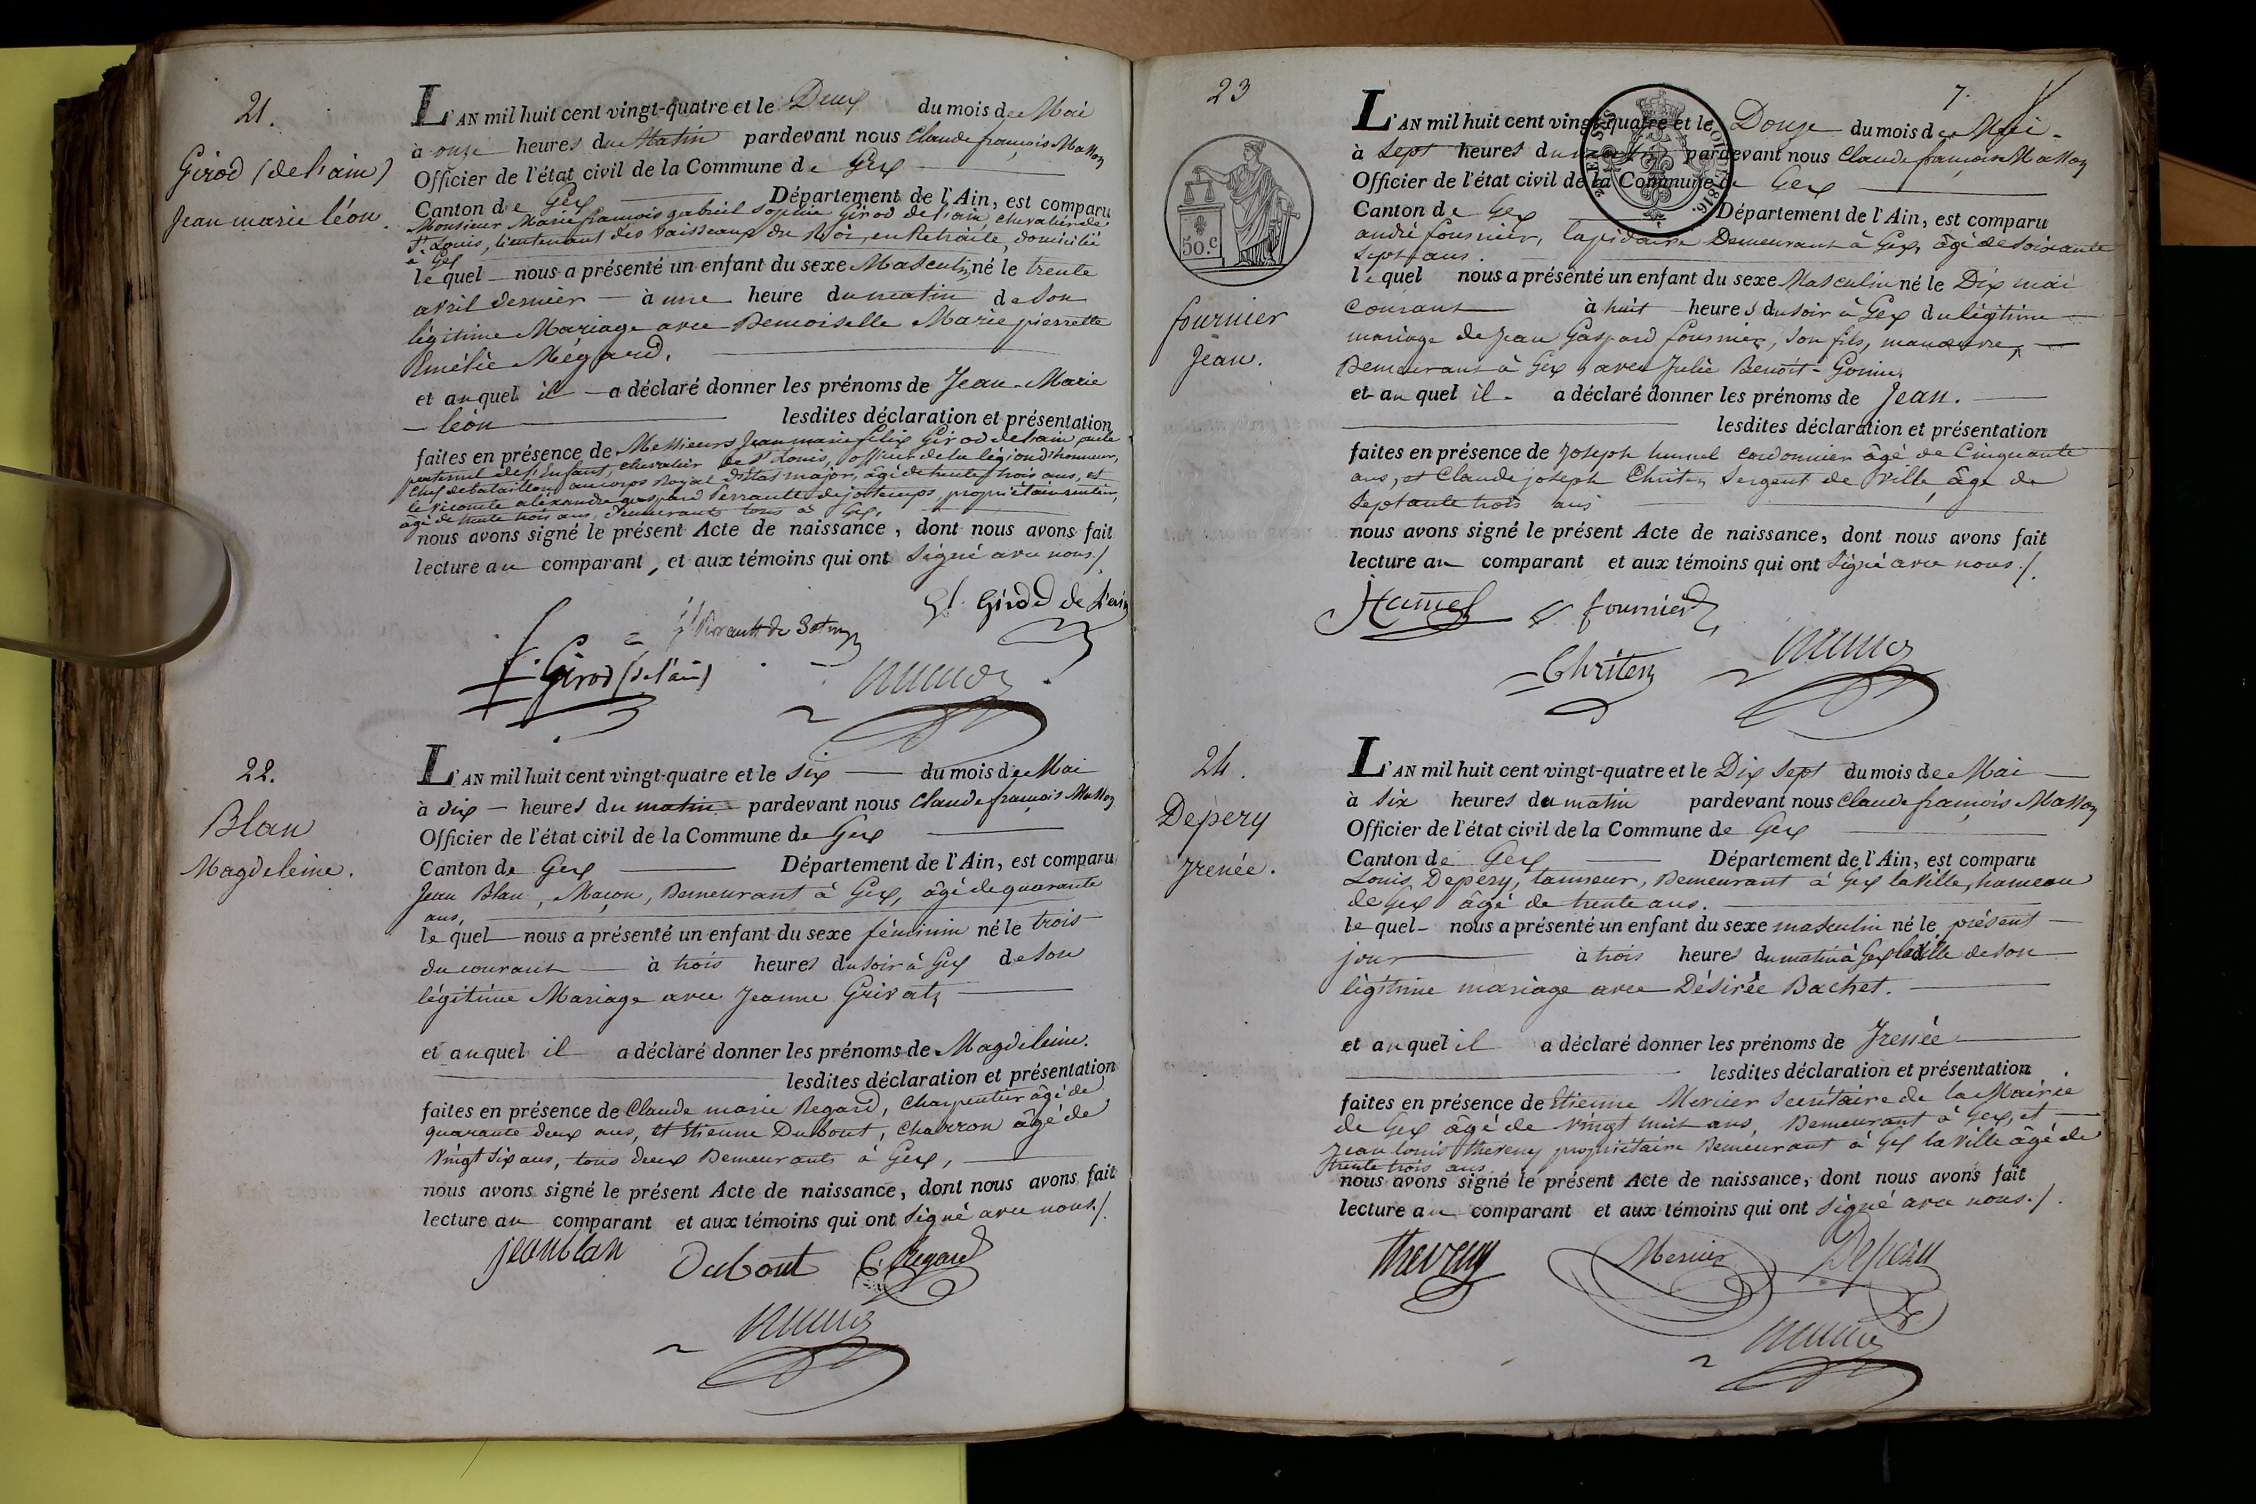 21.
Girod (de l'ain)
Jean marie léon.
L'AN mil huit cent vingt-quatre et le Deux du mois de Mai
à onze heures du Matin pardevant nous Claude françois Masson
Officier de l'état civil de la Commune de Gex
Canton de Gex Département de l'Ain, est comparu
Monsieur Marie françois gabriel Sophie Girod de l'ain, chevalier de
St Louis, lieutenant des Vaisseaux du Roi, en Retraite, domicilié
à Gex
lequel nous a présenté un enfant du sexe Masculin né le trente
avril dernier à une heure du matin de son
légitime Mariage avec Demoiselle Marie pierrette
Emélie Mégard.
et auquel il a déclaré donner les prénoms de Jean-Marie
léon lesdites déclaration et présentation
faites en présence de Messieurs Jean marie felix Girod de l'ain, oncle
paternel de l'Enfant, chevalier de St Louis, officier de la légion d'honneur,
chef de bataillon au corps Royal d'état major, âgé de trente trois ans, et
le Vicomte alexandre gaspard Perrault de jotemps, propriétaire rentier,
âgé de trente trois ans, demeurants tous à Gex,
nous avons signé le présent Acte de naissance, dont nous avons fait
lecture au comparant, et aux témoins qui ont Signé avec nous./.
Girod de l'ain
Perrault de Jotemps
f. Girod (de l'ain)
22.
Blan
Magdeleine.
L'AN mil huit cent vingt-quatre et le Six du mois de Mai
à dix heures du matin pardevant nous Claude françois Masson
Officier de l'état civil de la Commune de Gex
Canton de Gex Département de l'Ain, est comparu
Jean Blan, Maçon, Demeurant à Gex, âgé de quarante
ans,
lequel nous a présenté un enfant du sexe féminin né le trois
du courant à trois heures du soir à Gex de son
légitime Mariage avec Jeanne Grivat,
et auquel il a déclaré donner les prénoms de Magdeleine.
lesdites déclaration et présentation
faites en présence de Claude marie Regard, Charpentier âgé de
quarante deux ans, et Etienne Dubout, Charron âgé de
Vingt Six ans, tous deux Demeurants à Gex,
nous avons signé le présent Acte de naissance, dont nous avons fait
lecture au comparant et aux témoins qui ont Signé avec nous./.
jean blan Dubout C. Regard
23
50.c
fournier
Jean.
7.
L'AN mil huit cent vingt-quatre et le Douze du mois de Mai
à Sept heures du pardevant nous Claude françois Masson
Officier de l'état civil de la Commune de Gex
Canton de Gex Département de l'Ain, est comparu
andré fournier, lapidaire Demeurant à Gex, âgé de Soixante
Sept ans.
lequel nous a présenté un enfant du sexe Masculin né le Dix mai
courant à huit heures du soir à Gex du légitime
mariage de Jean Gaspard fournier, son fils, manœuvre,
Demeurant à Gex, avec Julie Benoît-Gonin,
et auquel il a déclaré donner les prénoms de Jean.
lesdites déclaration et présentation
faites en présence de Joseph humel cordonnier âgé de Cinquante
ans, et Claude joseph Christen, Sergent de Ville, âgé de
Septante trois ans
nous avons signé le présent Acte de naissance, dont nous avons fait
lecture au comparant et aux témoins qui ont Signé avec nous./.
Humel fournier
Chriten
24.
Dépery
Irenée.
L'AN mil huit cent vingt-quatre et le Dix Sept du mois de Mai
à Six heures du matin pardevant nous Claude françois Masson
Officier de l'état civil de la Commune de Gex
Canton de Gex Département de l'Ain, est comparu
Louis Dépery, tanneur, Demeurant à Gex la Ville, hameau
de Gex âgé de trente ans.
lequel nous a présenté un enfant du sexe masculin né le présent
jour à trois heures du matin à Gex la Ville de son
légitime mariage avec Désirée Bachet.
et auquel il a déclaré donner les prénoms de Irenée
lesdites déclaration et présentation
faites en présence de Etienne Mercier Secrétaire de la Mairie
de Gex âgé de Vingt huit ans, Demeurant à Gex, et
Jean louis theveny propriétaire Demeurant à Gex la Ville âgé de
trente trois ans
nous avons signé le présent Acte de naissance, dont nous avons fait
lecture au comparant et aux témoins qui ont Signé avec nous./.
Theveny Mercier Depery